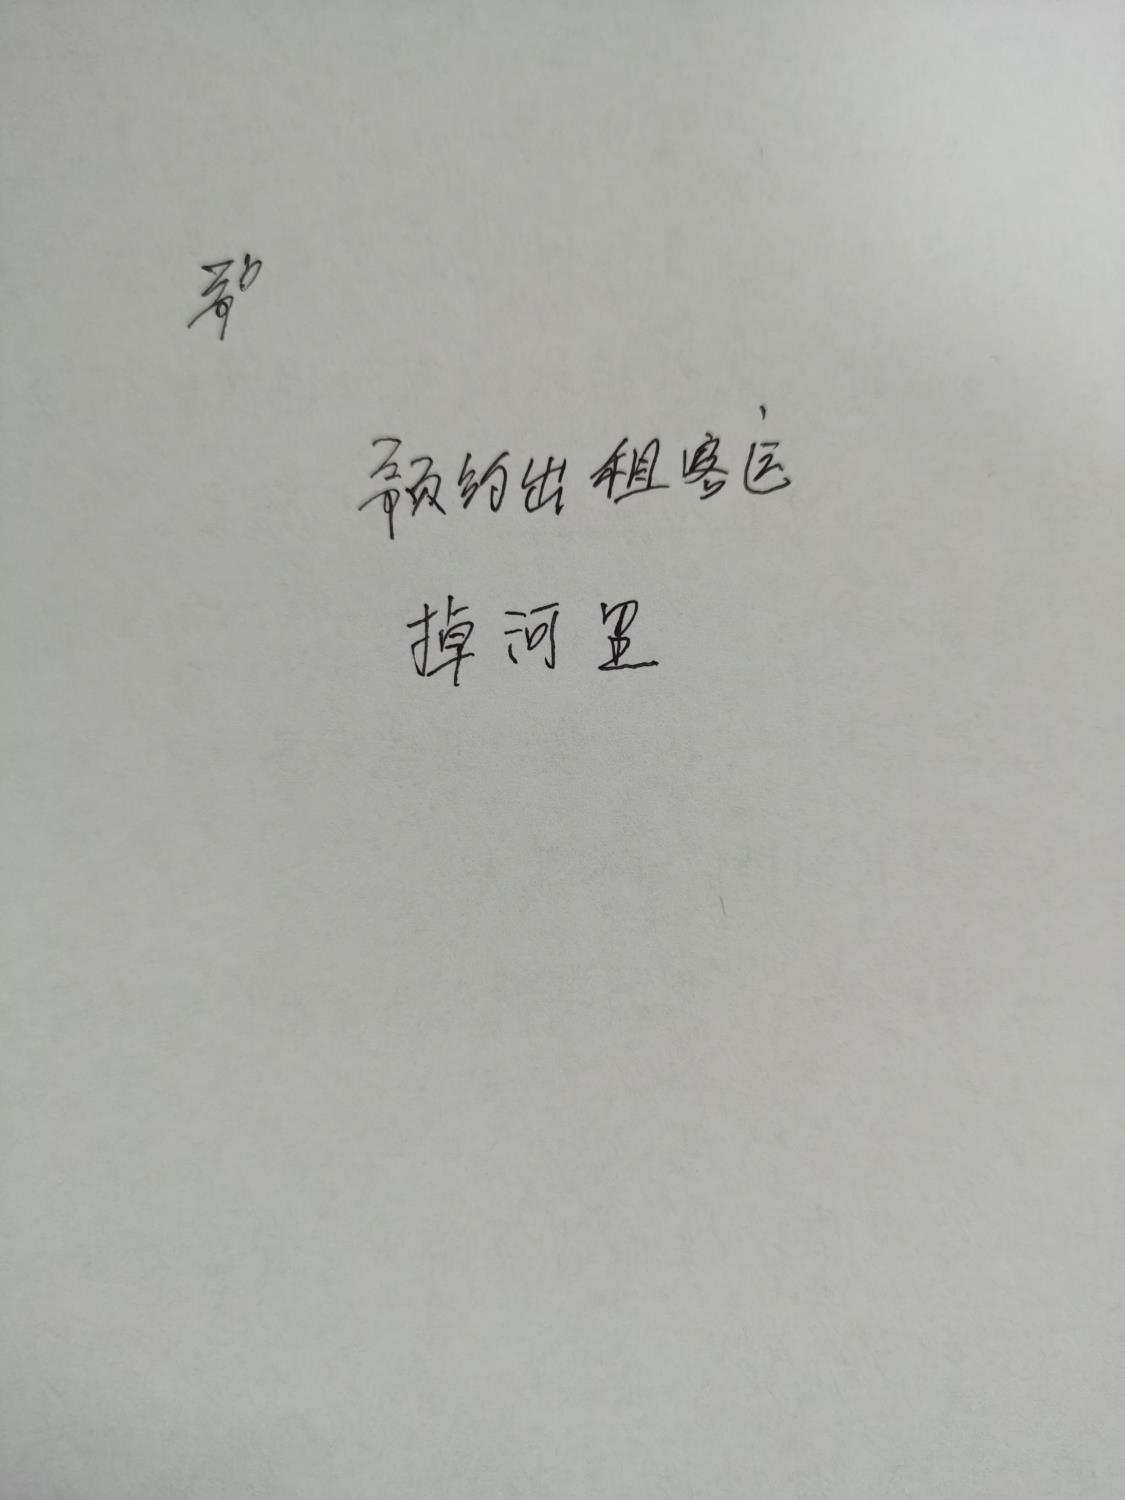 预约出租客运
掉河里